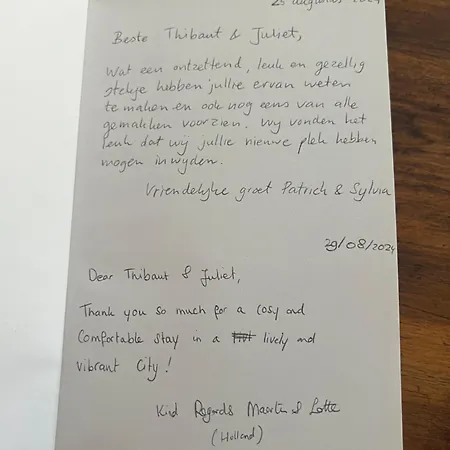 25 augustus 2024
Beste Thibaut & Juliet,
Wat een ontzettend, leuk en gezellig
stekje hebben jullie ervan weten
te maken en ook nog eens van alle
gemakken voorzien. Wij vonden het
leuk dat wij jullie nieuwe plek hebben
mogen inwijden.
Vriendelijke groet Patrick & Sylvia
29/08/2024
Dear Thibaut & Juliet,
Thank you so much for a cosy and
Comfortable stay in a lively and
vibrant City!
Kind Regards Maarten & Lotte
(Holland)